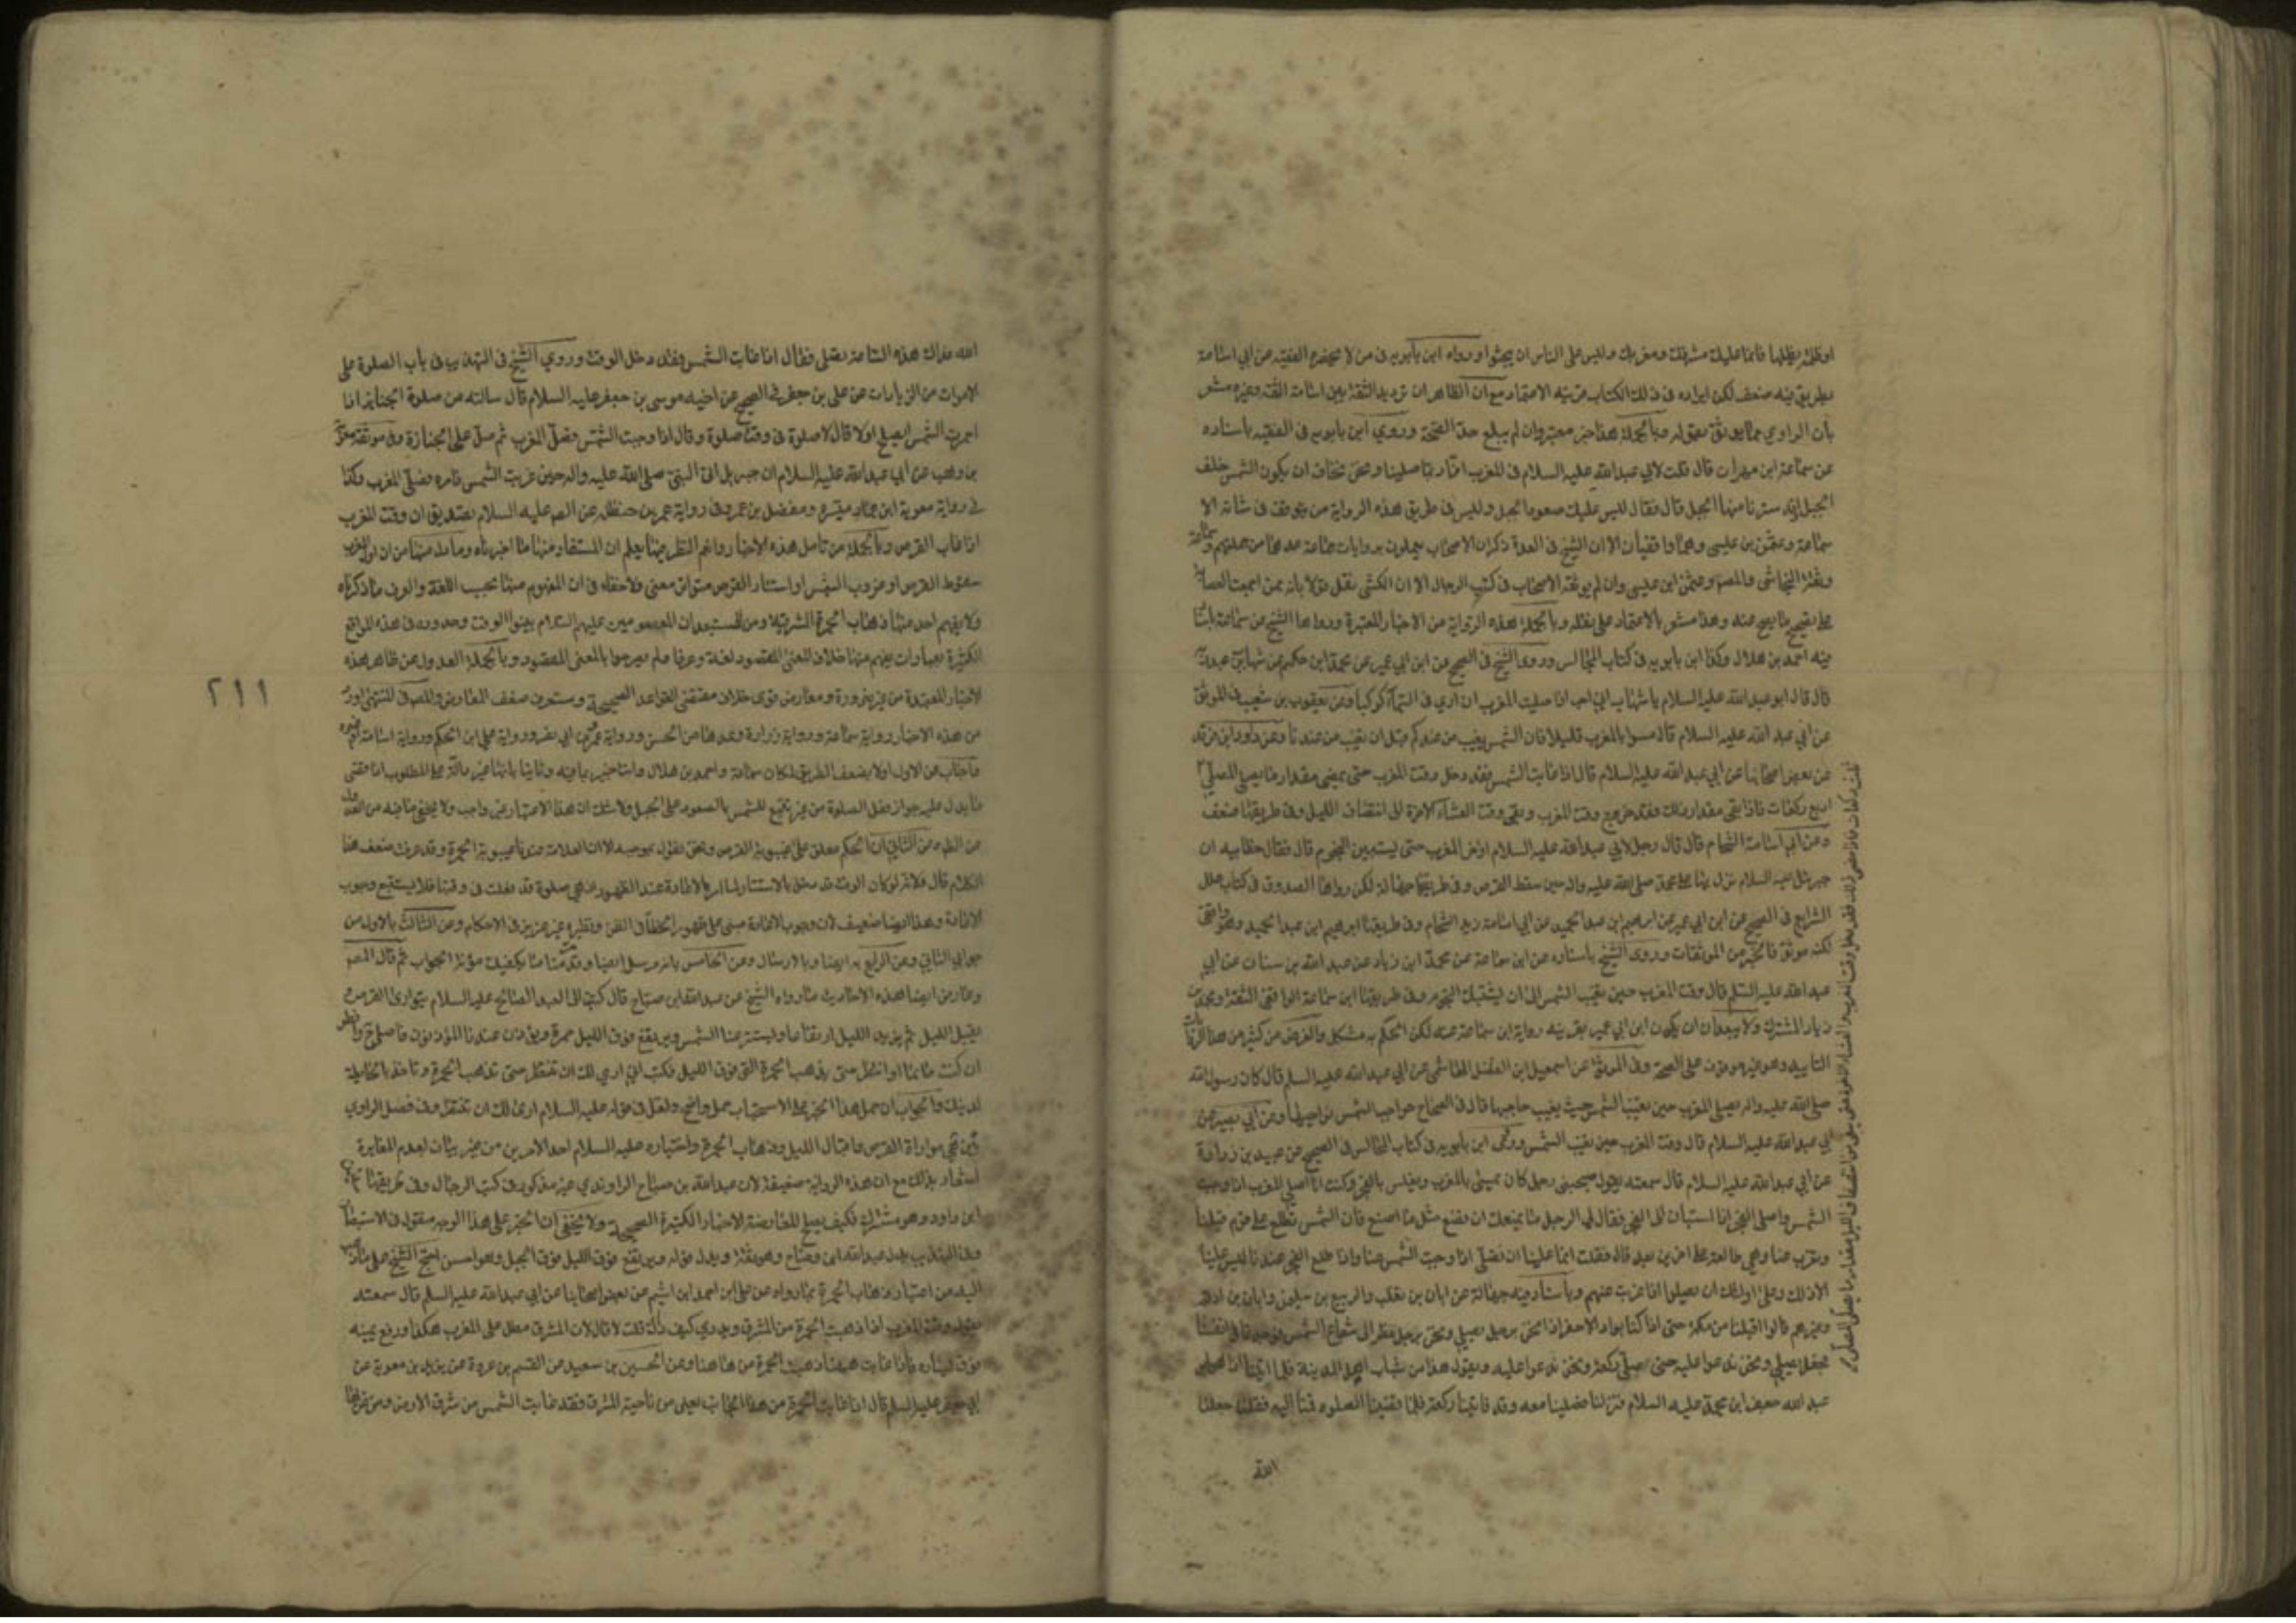 او ظلمة يظلها فانما عليك مشرقك ومغربك وليس على الناس ان يبحثوا ورواه ابن بابويه في من لا يحضره الفقيه عن ابي اسامة
بطريق فيه ضعف لكن ايراده في ذلك الكتاب قرينه الاعتماد مع ان الظاهر ان ترديد الثقة بين اسامة الثقة وغيره مشعر
بان الراوي مما يوثق بقوله وبالجملة هذا خبر معتبر وان لم يبلغ حد الصحة وروي ابن بابويه في الفقيه باسناده
عن سماعة ابن مهران قال قلت لابي عبدالله عليه السلام في المغرب انا ربما صلينا ونحن نخاف ان يكون الشمس خلف
الجبل او قد سترنا منها الجبل قال فقال ليس عليك صعود الجبل وليس في طريق هذه الرواية من يتوقف في شانه الا
سماعة وعثمن بن عيسى وهما واقفيان الا ان الشيخ في العدة ذكر ان الاصحاب يعملون بروايات جماعة عدهما من جملتهم وسماعة
وثقه النجاشي والمصـ وعثمن ابن عيسى وان لم يوثقه الاصحاب في كتب الرجال الا ان الكشي نقل قولا بانه ممن اجمعت العصابة
على تصحيح ما يصح عنه وهذا مشعر بالاعتماد على نقله وبالجملة هذه الرواية من الاخبار المعتبرة ورواها الشيخ عن سماعة باسناد
فيه احمد بن هلال وكذا ابن بابويه في كتاب المجالس وروى الشيخ في الصحيح عن ابن ابي عمير عن محمد ابن حكيم عن شهاب بن عبدربه
قال قال ابو عبد الله عليه السلام يا شهاب اني احب اذا صليت المغرب ان اري في السماء كوكبا وعن يعقوب بن شعيب في الموثق
عن ابي عبد الله عليه السلام قال مسوا بالمغرب قليلا فان الشمس يغيب من عندكم قبل ان تغيب من عندنا وعن داود ابن فرقد
عن بعض اصحابنا عن ابي عبد الله عليه السلام قال اذا غابت الشمس فقد دخل وقت المغرب حتى يمضي مقدار ما يصلي المصلي
اربع ركعات فاذا بقي مقدار ذلك فقد خرج وقت المغرب وبقي وقت العشاء الاخرة الى انتصاف الليل وفي طريقها ضعف
وعن ابي اسامة الشحام قال قال رجل لابي عبدالله عليه السلام اؤخر المغرب حتى يستبين النجوم قال فقال خطابيه ان
جبرئيل عليه السلام نزل بها على محمد صلى الله عليه واله حين سقط القرص وفي طريقها جهالة لكن رواها الصدوق في كتاب علل
الشرايع في الصحيح عن ابن ابي عمير عن ابراهيم ابن عبد الحميد عن ابي اسامة زيد الشحام وفي طريقها ابراهيم ابن عبد الحميد وهو واقفي
لكنه موثق فالخبر من الموثقات وروى الشيخ باسناده عن ابن سماعة عن محمد ابن زياد عن عبد الله بن سنان عن ابي
عبد الله عليه السلم قال وقت المغرب حين تغيب الشمس الى ان يشتبك النجوم وفي طريقها ابن سماعة الواقفي الثقة ومحمد بن
زياد المشترك ولا يبعد ان يكون ابن ابي عمير بقرينه رواية ابن سماعة عنه لكن الحكم به مشكل والغرض من كثير من هذا الروايات
التاييد وهو غير موقوف على الصحة وفي الموثق عن اسمعيل ابن الفضل الهاشمي عن ابي عبد الله عليه السلم قال كان رسول الله
صلى الله عليه واله يصلي المغرب حين تغيب الشمس حيث يغيب حاجبها قال في الصحاح حواجب الشمس نواحيها وعن ابي بصير عن
ابي عبد الله عليه السلام قال وقت المغرب حين تغيب الشمس وروى ابن بابويه في كتاب المجالس في الصحيح عن عبيد بن زرارة
عن ابي عبد الله عليه السلام قال سمعته يقول صحبني رجل كان يمسي بالمغرب ويغلس بالفجر وكنت انا اصلي المغرب اذا وجبت
الشمس واصلي الفجر اذا استبان لى الفجر فقال لي الرجل ما يمنعك ان تصنع مثل ما اصنع فان الشمس تطلع على قوم قبلنا
وتغرب عنا وهي طالعة على اخرين بعد قال فقلت انما علينا ان نصلي اذا وجبت الشمس عنا واذا طلع الفجر عندنا ليس علينا
الا ذلك وعلى اولئك ان يصلوا اذا غربت عنهم وباسناد فيه جهالة عن ابان بن تغلب والربيع بن سليمن وابان بن ارقم
وغيرهم قالوا اقبلنا من مكة حتى اذا كنا بواد الاخضر اذا نحن برجل يصلي ونحن ننظر الى شعاع الشمس فوجدنا في انفسنا
فجعل يصلي ونحن ندعوا عليه حتى صلى ركعة ونحن ندعوا عليه ونقول هذا من شباب اهل المدينة فلما اتيناه اذا هو ابو
عبد الله جعفر ابن محمد عليه السلام فنزلنا فصلينا معه وقد فاتتنا ركعة فلما قضينا الصلوة قمنا اليه فقلنا جعلنا
الله
ثلث ركعات فاذا مضى ذلك فقد دخل وقت المغرب والعشاء الاخرة حتى يبقى من انتصاف الليل مقدار ما يصلي المصلي
الله فداك هذه الساعة تصلي فقال اذا غابت الشمس فقد دخل الوقت وروي الشيخ في التهذيب في باب الصلوة على
الاموات من الزيادات عن علي بن جعفر في الصحيح عن اخيه موسى بن جعفر عليه السلام قال سالته عن صلوة الجنايز اذا
احمرت الشمس ايصلح اولا قال لا صلوة في وقت صلوة وقال اذا وجبت الشمس فصل المغرب ثم صل على الجنازة وفي موثقة معوية
بن وهب عن ابي عبد الله عليه السلام ان جبريل اتى النبي صلى الله عليه واله حين غربت الشمس فامره فصلى المغرب وكذا
في رواية معوية ابن ميسرة ومفضل بن عمر وفي رواية عمر بن حنظلة عن الصـ عليه السلام تصديق ان وقت المغرب
اذا غاب القرص وبالجملة من تامل هذه الاخبار وانعم النظر فيها يعلم ان المستفاد منها ما اخبرناه وما دل منها من ان اول المغرب
سقوط القرص او غروب الشمس او استتار القرص متوافق معنى ولا خفاء في ان المفهوم منها بحسب اللغة والعرف ما ذكرناه
ولا يفهم احد منها ذهاب الحمرة المشرقية ومن المستبعد ان المعصومين عليهم السلام بينوا الوقت وحدوده في هذه المواقع
الكثيرة بعبارات يفهم منها خلاف المعنى المقصود لغة وعرفا ولم يصرحوا بالمعنى المقصود وبالجملة العدول عن ظاهر هذه
الاخبار المعتمدة من غير ضرورة ومعارض قوى خلاف مقتضى القواعد الصحيحة وستعرف ضعف المعارض والمصـ في المنتهى اورد
من هذه الاخبار رواية سماعة ورواية زرارة وعدهما من الحسن ورواية عمرو بن ابي نصر ورواية علي ابن الحكم ورواية اسامة او غيره
واجاب عن الاول اولا بضعف الطريق لمكان سماعة واحمد بن هلال وثانيا بانها غير دالة على المطلوب اذ اقصى
ما يدل عليه جواز فعل الصلوة من غير تتبع للشمس بالصعود على الجبل ولا شك ان هذا الاعتبار غير واجب ولا يخفى ما فيه من العدول
عن الظاهر وعن الثاني ان الحكم معلق على غيبوبة القرص ونحن نقول بموجبه الا ان العلامة عندنا غيبوبة الحمرة وقد عرفت ضعف هذا
الكلام قال ولانه لو كان الوقت قد دخل بالاستتار لما امر بالاعادة عند الظهور اذ هي صلوة قد فعلت في وقتها فلا يستتبع وجوب
الاعادة وهذا ايضا ضعيف لان وجوب الاعادة مبنى على ظهور الخطأ في الظن ونظيره غير عزيز في الاحكام وعن الثالث بالاول من
جوابي الثاني وعن الرابع به ايضا وبالارسال وعن الخامس بانه مرسل ايضا وقد قدمنا ما يكفيك مؤنة الجواب ثم قال المصـ
وعارض ايضا هذه الاحاديث بما رواه الشيخ عن عبد الله ابن صباح قال كتبت الى العبد الصالح عليه السلام يتوارى القرص
يقبل الليل ثم يزيد الليل ارتفاعا ويستتر عنا الشمس ويرتفع فوق الليل حمرة ويؤذن عندنا المؤذنون فاصلي ح وافطر
ان كنت صائما او انتظر حتى يذهب الحمرة التي فوق الليل فكتب الي اري لك ان تنتظر حتى تذهب الحمرة وتاخذ بالحايطة
لدينك والجواب ان حمل هذا الخبر على الاستحباب حمل واضح ولعل في قوله عليه السلام ارى لك ان تنتظر وفي فصل الراوي
بين مواراة القرص واقبال الليل وذهاب الحمرة واختياره عليه السلام احد الامرين من غير بيان لعدم المغايرة
اشعار بذلك مع ان هذه الرواية ضعيفة لان عبد الله بن صباح الراوندي غير مذكور في كتب الرجال وفي طريقها
ابن داود وهو مشترك فكيف يصلح للمعارضة الاخبار الكثيرة الصحيحة ولا يخفى ان الخبر على هذا الوجه منقول في الاستبصار
وفي التهذيب بدل عبد الله ابن وضاح وهو ثقة وبدل قوله ويرتفع فوق الليل فوق الجبل وهو احسن احتج الشيخ على ما ذهب
اليه من اعتبار ذهاب الحمرة بما رواه عن علي ابن احمد ابن اشيم عن بعض اصحابنا عن ابي عبد الله عليه السلم قال سمعته
يقول وقت المغرب اذا ذهبت الحمرة من المشرق وتدري كيف ذاك قلت لا قال لان المشرق مطل على المغرب هكذا ورفع يمينه
فوق يساره فاذا غابت ههنا ذهبت الحمرة من هاهنا وعن الحسين بن سعيد عن القسم بن عروة عن بريد بن معوية عن
ابي جعفر عليه السلم قال اذا غابت الحمرة من هذا الجانب يعني من ناحية المشرق فقد غابت الشمس من شرق الارض ومن غربها
٢١١